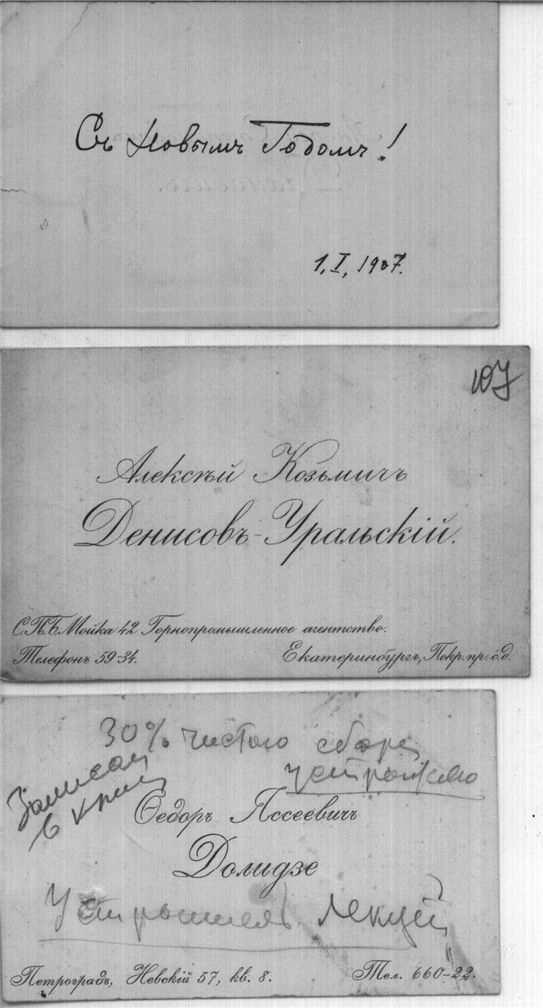 Съ Новымъ Годомъ!
1, I, 1907.
107
Алексѣй Козьмичъ
Денисовъ-Уральскій.
С.П.Б. Мойка 42 Горнопромышленное агентство.
Телефонъ 59-34.
Екатеринбургъ, Покр. пр. с.д.
30% чистого сбора
устройство
Записан
в книг
Ѳедоръ Ясеевичъ
Долидзе
Устроитель лекций
Петроградъ, Невскій 57, кв. 8.
Тел. 660-22.